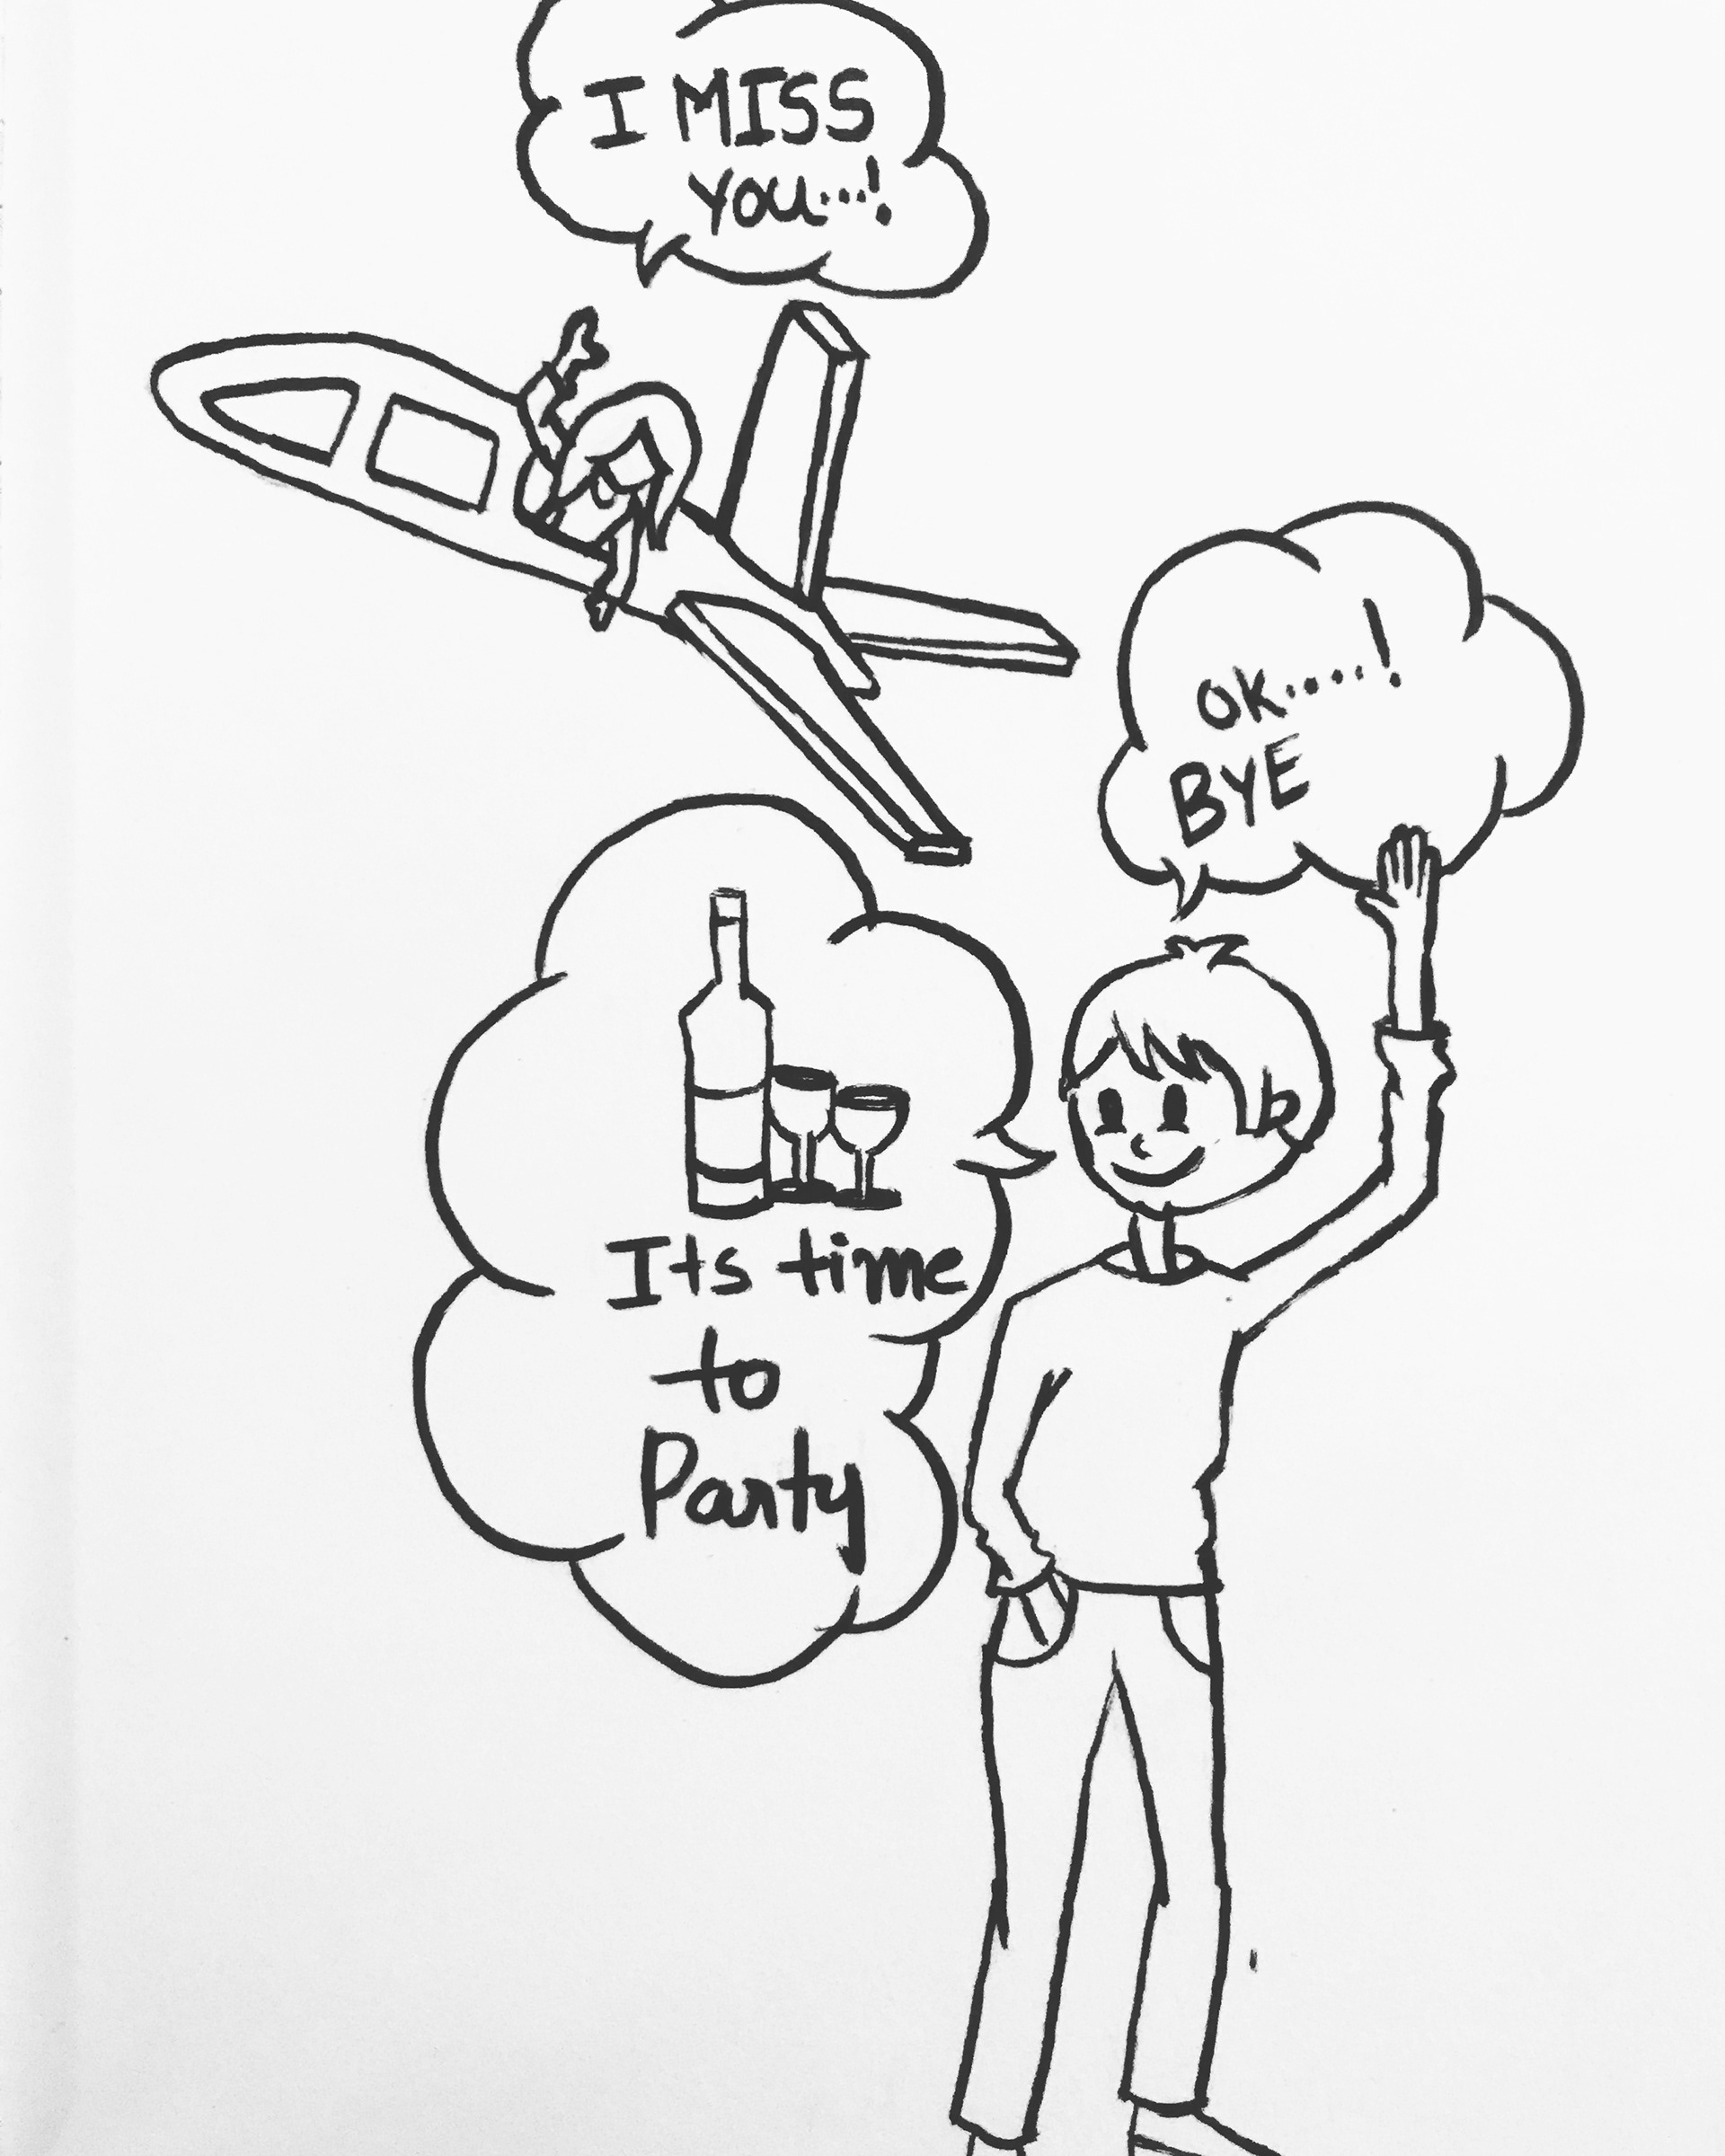 I MISS
YOU...!
OK.....!
BYE
Its time
to
Party